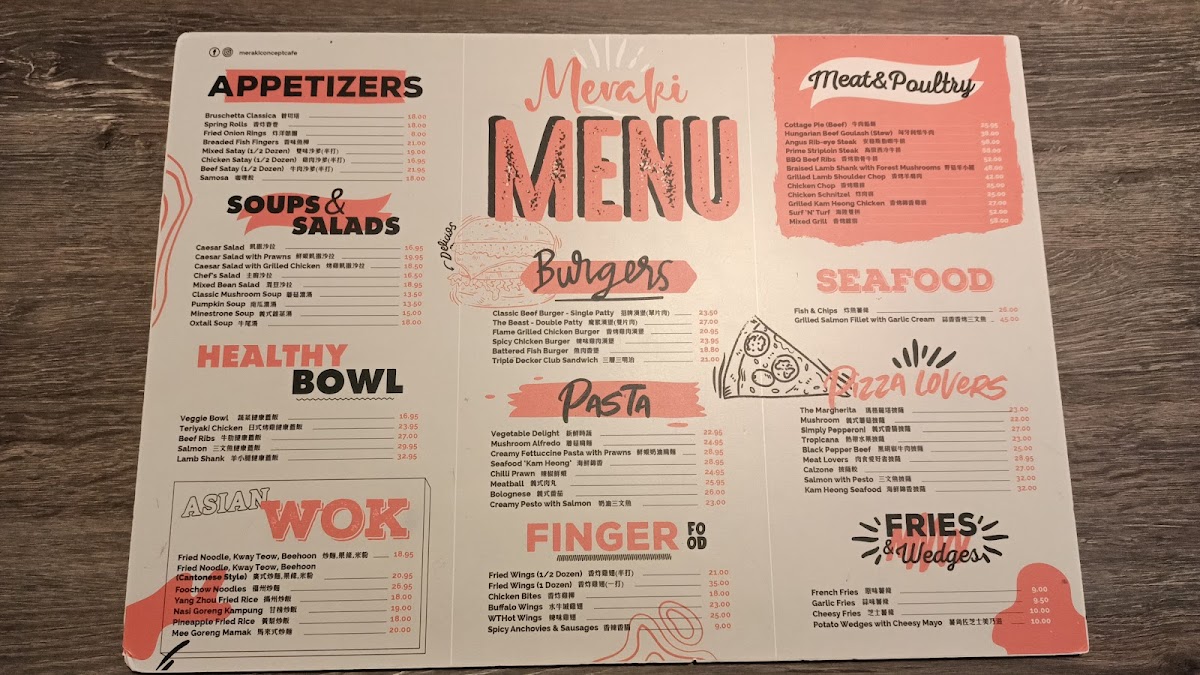 merakiconceptcafe
APPETIZERS
Bruschetta Classica 18.00
Spring Rolls 香炸春卷 18.00
Fried Onion Rings 炸洋蔥圈 8.00
Breaded Fish Fingers 21.00
Mixed Satay (1/2 Dozen) 雙味沙爹(半打) 19.00
Chicken Satay (1/2 Dozen) 雞肉沙爹(半打) 16.95
Beef Satay (1/2 Dozen) 牛肉沙爹(半打) 21.95
Samosa 咖喱餃 18.00
SOUPS & SALADS
Caesar Salad 凱撒沙拉 16.95
Caesar Salad with Prawns 鮮蝦凱撒沙拉 19.95
Caesar Salad with Grilled Chicken 烤雞凱撒沙拉 18.50
Chef's Salad 主廚沙拉 18.50
Mixed Bean Salad 混豆沙拉 18.95
Classic Mushroom Soup 蘑菇濃湯 13.50
Pumpkin Soup 南瓜濃湯 13.50
Minestrone Soup 義式蔬菜湯 15.00
Oxtail Soup 牛尾湯 18.00
HEALTHY BOWL
Veggie Bowl 蔬菜健康蓋飯 16.95
Teriyaki Chicken 日式烤雞健康蓋飯 23.95
Beef Ribs 牛肋健康蓋飯 27.00
Salmon 三文魚健康蓋飯 29.95
Lamb Shank 羊小腿健康蓋飯 32.95
ASIAN WOK
Fried Noodle, Kway Teow, Beehoon 炒麵,粿條,米粉 18.95
Fried Noodle, Kway Teow, Beehoon
(Cantonese Style) 廣式炒麵,粿條,米粉 20.95
Foochow Noodles 福州炒麵 26.95
Yang Zhou Fried Rice 揚州炒飯 18.00
Nasi Goreng Kampung 甘榜炒飯 19.00
Pineapple Fried Rice 黃梨炒飯 18.00
Mee Goreng Mamak 馬來式炒麵 20.00
Meraki
MENU
Delicios
Burgers
Classic Beef Burger - Single Patty 招牌漢堡(單片肉) 23.50
The Beast - Double Patty 魔獸漢堡(雙片肉) 27.00
Flame Grilled Chicken Burger 香烤雞肉漢堡 20.95
Spicy Chicken Burger 辣味雞肉漢堡 23.95
Battered Fish Burger 魚肉漢堡 18.80
Triple Decker Club Sandwich 三層三明治 21.00
PASTA
Vegetable Delight 新鮮時蔬 22.95
Mushroom Alfredo 蘑菇扁麵 24.95
Creamy Fettuccine Pasta with Prawns 鮮蝦奶油扁麵 28.95
Seafood 'Kam Heong' 海鮮錦香 28.95
Chilli Prawn 辣椒鮮蝦 24.95
Meatball 義式肉丸 25.95
Bolognese 義式番茄 26.00
Creamy Pesto with Salmon 奶油三文魚 23.00
FINGER FOOD
Fried Wings (1/2 Dozen) 香炸雞翅(半打) 21.00
Fried Wings (1 Dozen) 香炸雞翅(一打) 35.00
Chicken Bites 香炸雞柳 18.00
Buffalo Wings 水牛城雞翅 23.00
WTHot Wings 辣味雞翅 25.00
Spicy Anchovies & Sausages 香辣香腸 9.00
Meat&Poultry
Cottage Pie (Beef) 25.95
Hungarian Beef Goulash (Stew) 38.00
Angus Rib-eye Steak 68.00
Prime Striploin Steak 68.00
BBQ Beef Ribs 52.00
Braised Lamb Shank with Forest Mushrooms 48.00
Grilled Lamb Shoulder Chop 42.00
Chicken Chop 香烤雞排 25.00
Chicken Schnitzel 25.00
Grilled Kam Heong Chicken 27.00
Surf 'N' Turf 海陸雙拼 52.00
Mixed Grill 58.00
SEAFOOD
Fish & Chips 炸魚薯條 26.00
Grilled Salmon Fillet with Garlic Cream 蒜蓉香烤三文魚 45.00
Pizza Lovers
The Margherita 瑪格麗塔披薩 23.00
Mushroom 義式蘑菇披薩 22.00
Simply Pepperoni 義式香腸披薩 27.00
Tropicana 熱帶水果披薩 23.00
Black Pepper Beef 黑胡椒牛肉披薩 25.00
Meat Lovers 肉食愛好者披薩 28.95
Calzone 披薩餃 27.00
Salmon with Pesto 三文魚披薩 32.00
Kam Heong Seafood 海鮮錦香披薩 32.00
FRIES & Wedges
French Fries 原味薯條 9.00
Garlic Fries 蒜味薯條 9.50
Cheesy Fries 芝士薯條 10.00
Potato Wedges with Cheesy Mayo 薯角佐芝士美乃滋 10.00